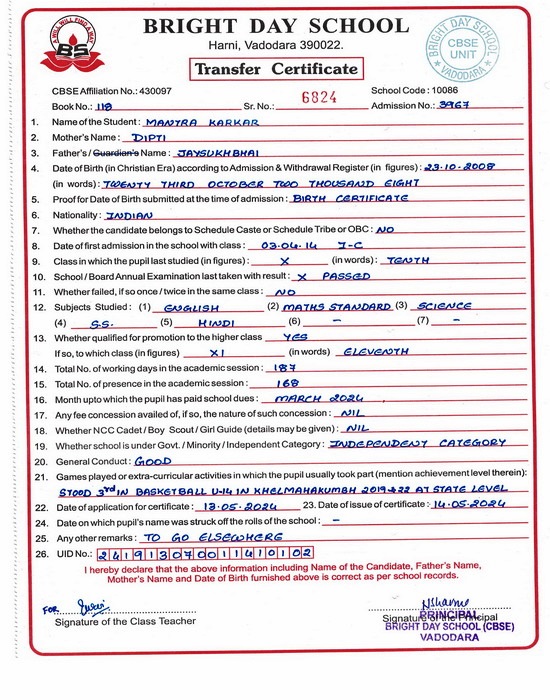 BRIGHT DAY SCHOOL
Harni, Vadodara 390022.
Transfer Certificate
A WILL WILL FIND A WAY
BS
BRIGHT DAY SCHOOL
CBSE
UNIT
VADODARA
CBSE Affiliation No.: 430097 School Code : 10086
Book No.: 118 Sr. No.: 6824 Admission No.: 3967
1. Name of the Student : MANTRA KARKAR
2. Mother's Name : DIPTI
3. Father's / Guardian's Name : JAYSUKHBHAI
4. Date of Birth (in Christian Era) according to Admission & Withdrawal Register (in figures) : 23-10-2008
(in words) : TWENTY THIRD OCTOBER TWO THOUSAND EIGHT
5. Proof for Date of Birth submitted at the time of admission : BIRTH CERTIFICATE
6. Nationality : INDIAN
7. Whether the candidate belongs to Schedule Caste or Schedule Tribe or OBC : NO
8. Date of first admission in the school with class : 03-04-14 I-C
9. Class in which the pupil last studied (in figures) : X (in words) : TENTH
10. School / Board Annual Examination last taken with result : X PASSED
11. Whether failed, if so once / twice in the same class : NO
12. Subjects Studied : (1) ENGLISH (2) MATHS STANDARD (3) SCIENCE
(4) S.S. (5) HINDI (6) - (7) -
13. Whether qualified for promotion to the higher class YES
If so, to which class (in figures) XI (in words) ELEVENTH
14. Total No. of working days in the academic session : 187
15. Total No. of presence in the academic session : 168
16. Month upto which the pupil has paid school dues : MARCH 2024
17. Any fee concession availed of, if so, the nature of such concession : NIL
18. Whether NCC Cadet / Boy Scout / Girl Guide (details may be given) : NIL
19. Whether school is under Govt. / Minority / Independent Category : INDEPENDENT CATEGORY
20. General Conduct : GOOD
21. Games played or extra-curricular activities in which the pupil usually took part (mention achievement level therein):
STOOD 3rd IN BASKETBALL U-14 IN KHELMAHAKUMBH 2019 & 22 AT STATE LEVEL
22. Date of application for certificate : 13-05-2024 23. Date of issue of certificate : 14-05-2024
24. Date on which pupil's name was struck off the rolls of the school : -
25. Any other remarks : TO GO ELSEWHERE
26. UID No.: 241913070011410102
I hereby declare that the above information including Name of the Candidate, Father's Name,
Mother's Name and Date of Birth furnished above is correct as per school records.
FOR
Signature of the Class Teacher
Signature of the Principal
PRINCIPAL
BRIGHT DAY SCHOOL (CBSE)
VADODARA